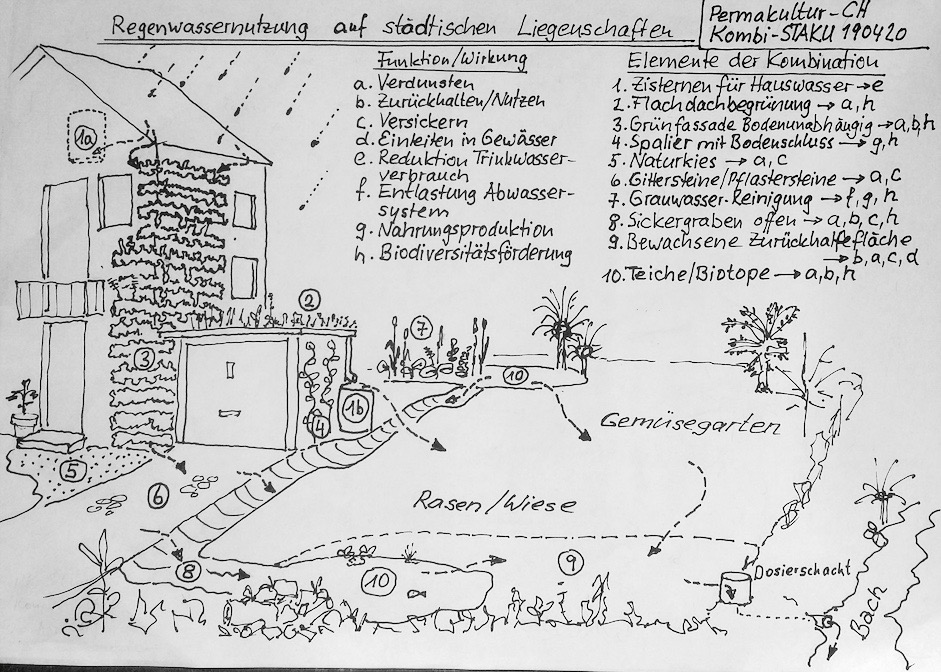 Regenwassernutzung auf städtischen Liegenschaften
Permakultur-CH
Kombi-STAKU 190420
Funktion/Wirkung
a. Verdunsten
b. Zurückhalten/Nutzen
c. Versickern
d. Einleiten in Gewässer
e. Reduktion Trinkwasser-
verbrauch
f. Entlastung Abwasser-
system
g. Nahrungsproduktion
h. Biodiversitätsförderung
Elemente der Kombination
1. Zisternen für Hauswasser → e
2. Flachdachbegrünung → a, h
3. Grünfassade Bodenunabhängig → a, b, h
4. Spalier mit Bodenschluss → g, h
5. Naturkies → a, c
6. Gittersteine/Pflastersteine → a, c
7. Grauwasser-Reinigung → f, g, h
8. Sickergraben offen → a, b, c, h
9. Bewachsene Zurückhaltefläche
→ b, a, c, d
10. Teiche/Biotope → a, b, h
1a
2
7
3
10
1b
4
Gemüsegarten
5
6
Rasen/Wiese
8
10
9
Dosierschacht
Bach